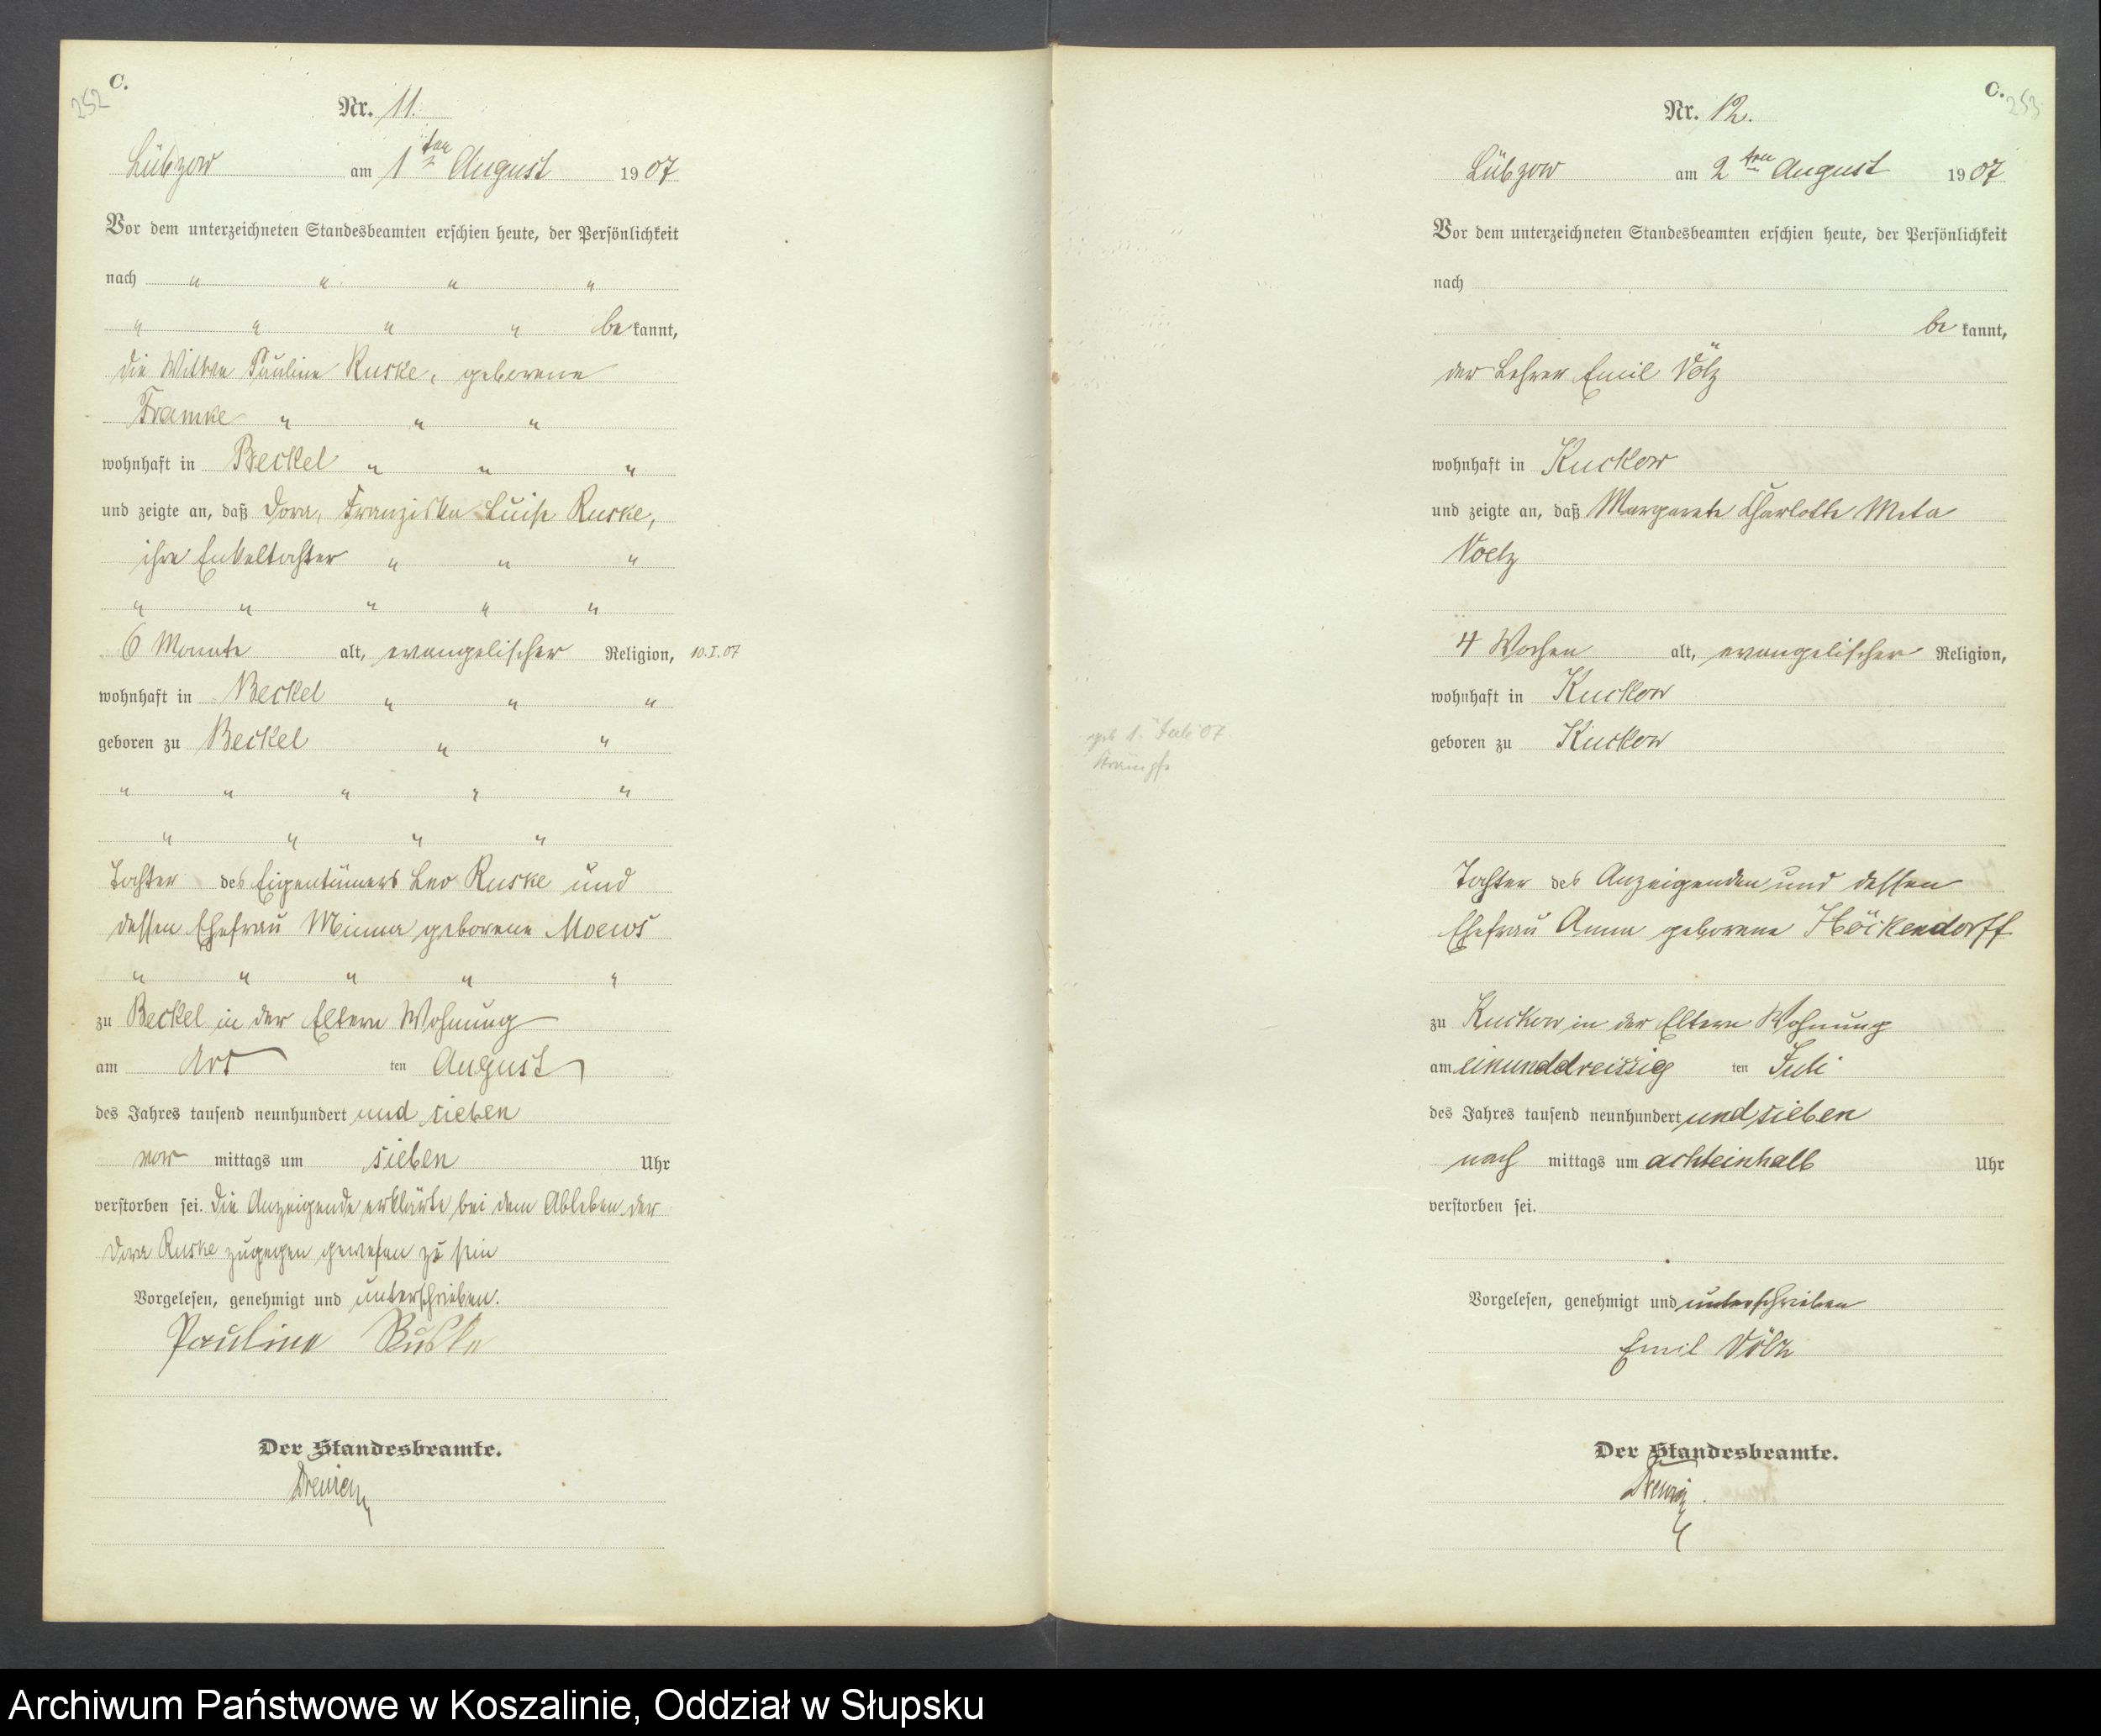 252
C.
Nr. 11.
Lübzow am 1ten August 1907
Vor dem unterzeichneten Standesbeamten erschien heute, der Persönlichkeit
nach " " " "
" " " " be kannt,
die Witwe Pauline Ruske, geborene
Framke " " "
wohnhaft in Beckel " " "
und zeigte an, daß Dora, Franziska Luise Ruske,
ihre Enkeltochter " " "
" " " " "
6 Monate alt, evangelischer Religion, 10.I.07
wohnhaft in Beckel " " "
geboren zu Beckel " "
" " " " "
" " " "
Tochter des Eigentümers Leo Ruske und
dessen Ehefrau Minna geborene Moews
" " " " "
zu Beckel in der Eltern Wohnung
am ten August
des Jahres tausend neunhundert und sieben
vor mittags um sieben Uhr
verstorben sei. Die Anzeigende erklärte bei dem Ableben der
Dora Ruske zugegen gewesen zu sein
Vorgelesen, genehmigt und unterschrieben.
Pauline Ruske
Der Standesbeamte.
C.
253
Nr. 12.
Lübzow am 2ten August 1907
Vor dem unterzeichneten Standesbeamten erschien heute, der Persönlichkeit
nach
be kannt,
der Lehrer Emil Völz
wohnhaft in Kuckow
und zeigte an, daß Margarete Charlotte Meta
Voelz
4 Wochen alt, evangelischer Religion,
wohnhaft in Kuckow
geb 1. Juli 07
geboren zu Kuckow
Krämpfe
Tochter des Anzeigenden und dessen
Ehefrau Anna geborene Höckendorff
zu Kuckow in der Eltern Wohnung
am einunddreissig ten Juli
des Jahres tausend neunhundert und sieben
nach mittags um achteinhalb Uhr
verstorben sei.
Vorgelesen, genehmigt und unterschrieben
Emil Völz
Der Standesbeamte.
Archiwum Państwowe w Koszalinie, Oddział w Słupsku